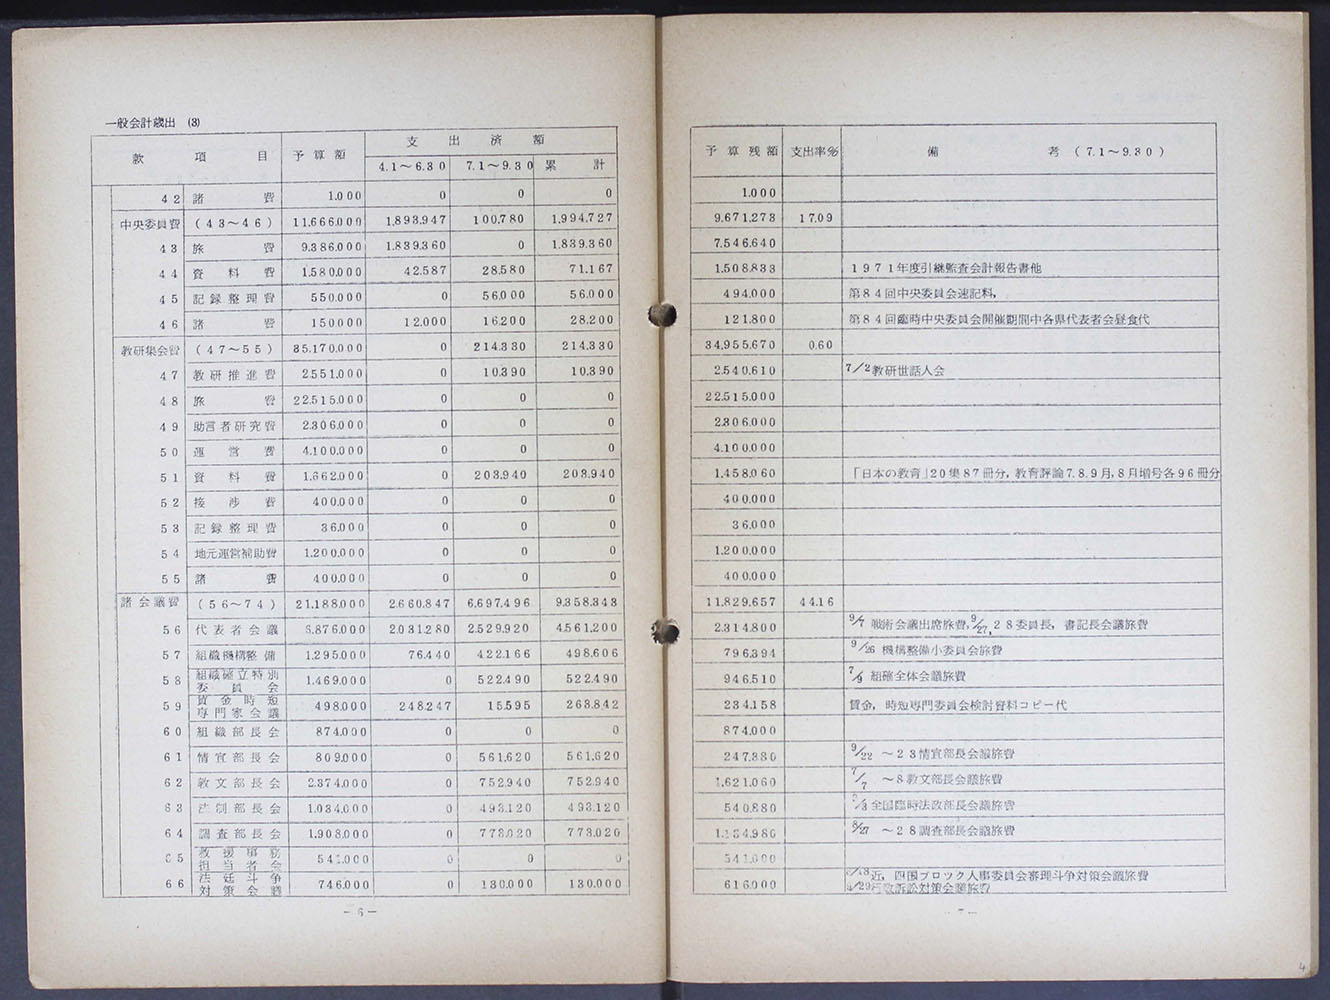 一般会計歳出 (3)
款 項 目 予算額 支出済額
4.1～6.30 7.1～9.30 累計
42 諸費 1.000 0 0 0
中央委員費 (43～46) 11.666.000 1.893.947 100.780 1.994.727
43 旅費 9.386.000 1.839.360 0 1.839.360
44 資料費 1.580.000 42.587 28.580 71.167
45 記録整理費 550.000 0 56.000 56.000
46 諸費 150.000 12.000 16.200 28.200
教研集会費 (47～55) 35.170.000 0 214.330 214.330
47 教研推進費 2.551.000 0 10.390 10.390
48 旅費 22.515.000 0 0 0
49 助言者研究費 2.306.000 0 0 0
50 運営費 4.100.000 0 0 0
51 資料費 1.662.000 0 203.940 203.940
52 接渉費 400.000 0 0 0
53 記録整理費 36.000 0 0 0
54 地元運営補助費 1.200.000 0 0 0
55 諸費 400.000 0 0 0
諸会議費 (56～74) 21.188.000 2.660.847 6.697.496 9.358.343
56 代表者会議 6.876.000 2.031.280 2.529.920 4.561.200
57 組織機構整備 1.295.000 76.440 422.166 498.606
58 組織確立特別委員会 1.469.000 0 522.490 522.490
59 賃金時短専門家会議 498.000 248.247 15.595 263.842
60 組織部長会 874.000 0 0 0
61 情宣部長会 809.000 0 561.620 561.620
62 教文部長会 2.374.000 0 752.940 752.940
63 法制部長会 1.034.000 0 493.120 493.120
64 調査部長会 1.908.000 0 773.020 773.020
65 救援事務担当者会 541.000 0 0 0
66 法廷斗争対策会議 746.000 0 130.000 130.000
－6－
予算残額 支出率% 備考 (7.1～9.30)
1.000
9.671.273 17.09
7.546.640
1.508.833 1971年度引継監査会計報告書他
494.000 第84回中央委員会速記料,
121.800 第84回臨時中央委員会開催期間中各県代表者会昼食代
34.955.670 0.60
2.540.610 7/2教研世話人会
22.515.000
2.306.000
4.100.000
1.458.060 「日本の教育」20集87冊分, 教育評論7.8.9月, 8月増号各96冊分
400.000
36.000
1.200.000
400.000
11.829.657 44.16
2.314.800 9/7 戦術会議出席旅費, 9/27, 28委員長, 書記長会議旅費
796.394 9/26 機構整備小委員会旅費
946.510 組確全体会議旅費
234.158 賃金, 時短専門委員会検討資料コピー代
874.000
247.380 9/22 ～23情宣部長会議旅費
1.621.060 7/7 ～8教文部長会議旅費
540.880 全国臨時法政部長会議旅費
1.134.980 8/27 ～28調査部長会議旅費
541.000
616.000 近, 四国ブロック人事委員会審理斗争対策会議旅費
行政訴訟対策会議旅費
7－
4